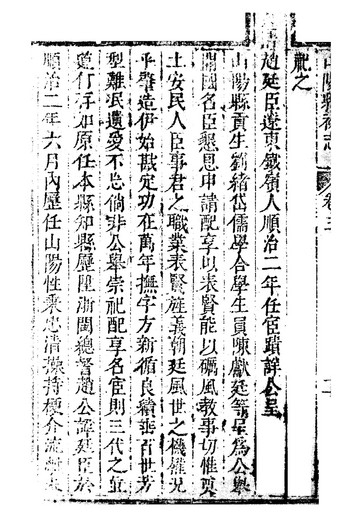 山陽縣初志 卷三
亂之
趙廷臣遼東鐵嶺人順治二年任宦蹟詳公呈
山陽縣貢生劉緒岱儒學合學生員陳獻廷等呈為公舉
開國名臣懇恩申請配享以表賢能以礪風教事切惟
土安民人臣事君之職業表賢旌義朝廷風世之機權
乎肇造伊始戡定功在萬年撫字方新循良續垂百世芳
型難泯遺愛不忘倘非公舉崇祀配享名宦則三代之
道何存如原任本縣知縣歷陞浙閩總督趙公諱廷臣於
順治二年六月內歷任山陽性秉忠清操持梗介流